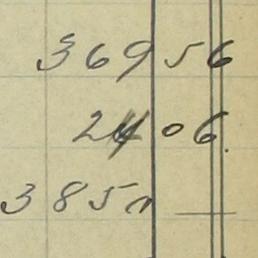 369 56
24 06.
385